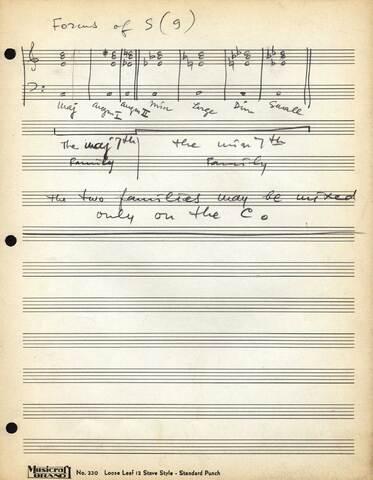 Forms of S (9)
Maj Augm I Augm II Min Large Dim Small
The Maj 7th the min 7th
Family Family
the two families may be mixed
only on the C.
Musicraft
BRAND
No. 330 Loose Leaf 12 Stave Style - Standard Punch